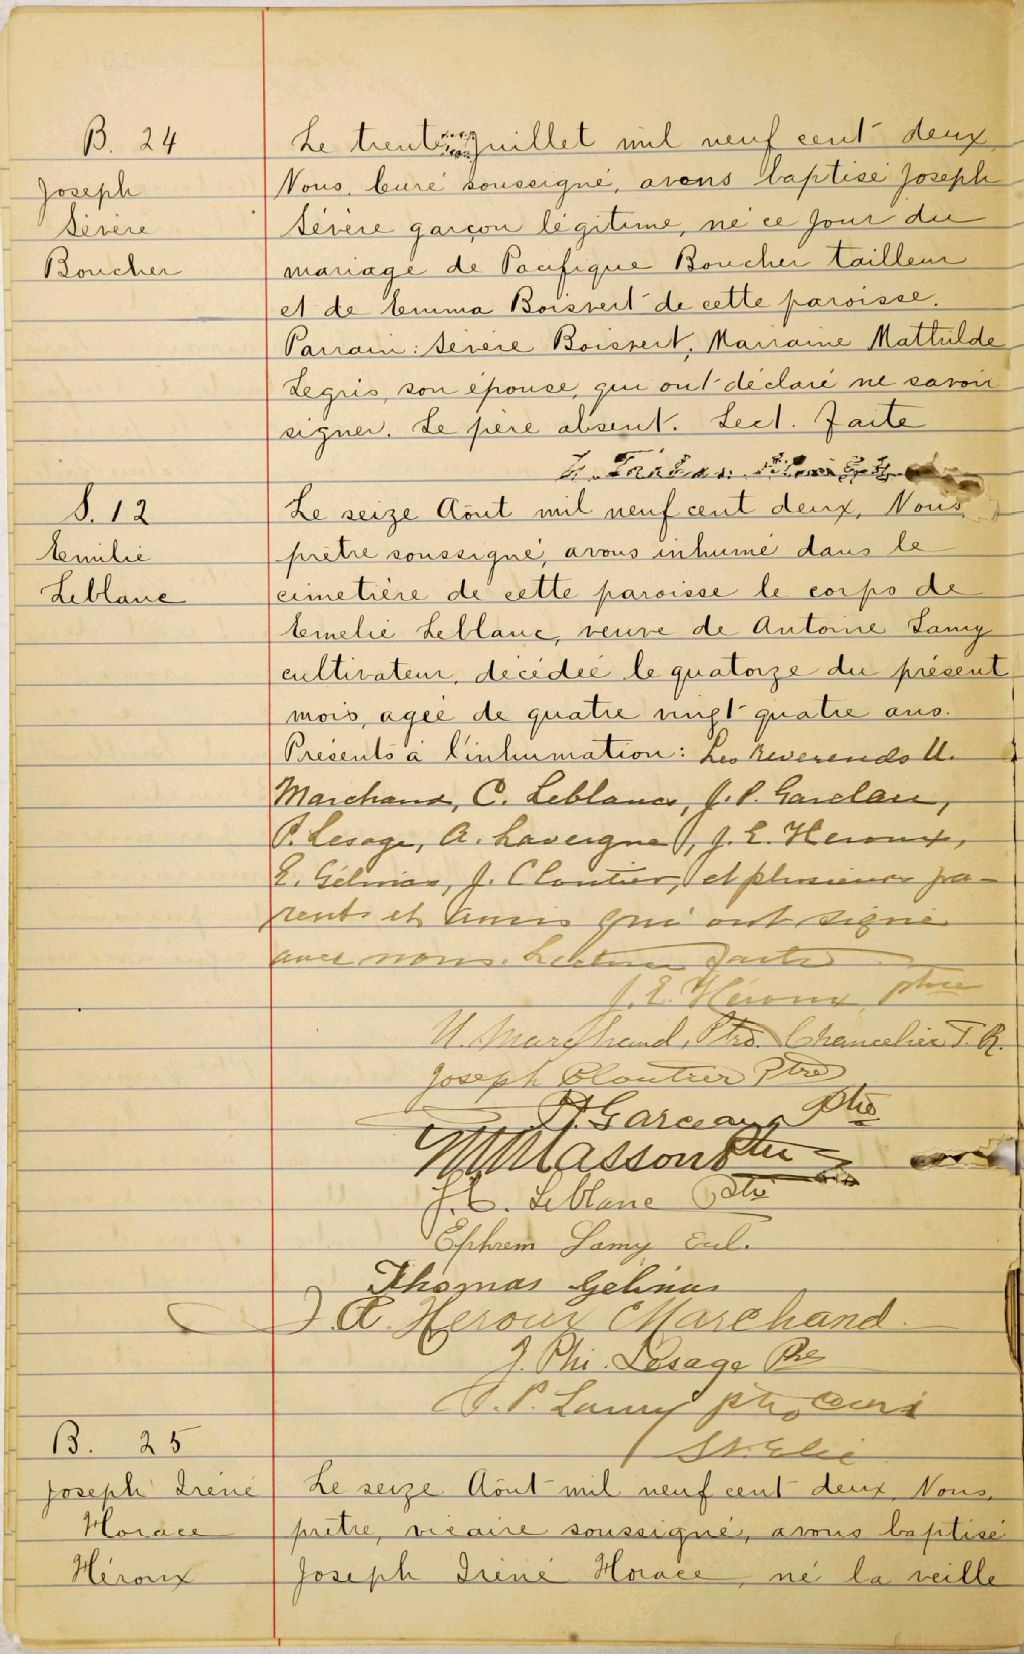 B. 24
Joseph
Sévère
Boucher
Le trente Juillet mil neuf cent deux
Nous, Curé soussigné, avons baptisé Joseph
Sévère garçon légitime, né ce jour du
mariage de Pacifique Boucher tailleur
et de Emma Boisvert de cette paroisse.
Parrain: Sévère Boisvert, Marraine Mathilde
Legris, son épouse, qui ont déclaré ne savoir
signer. Le père absent. Lect. faite
S. 12
Emilie
Leblanc
Le seize Aôut mil neuf cent deux, Nous
prêtre soussigné, avons inhumé dans le
cimetière de cette paroisse le corps de
Emelie Leblanc, veuve de Antoine Lamy
cultivateur, décédée le quatorze du présent
mois, agée de quatre vingt quatre ans.
Présents à l'inhumation: Les Reverends U.
Marchand, C. Leblanc, J. P. Garceau,
P. Lesage, A. Lavergne, J. E. Heroux,
E. Gélinas, J. Cloutier, et plusieurs pa-
rents et amis qui ont signé
avec nous. Lecture faite
J. E. Héroux, ptre
U. Marchand, Ptre. Chancelier T. R.
Joseph Cloutier Ptre
Garceau Ptre
Masson Ptre
J. C. Leblanc Ptre
Ephrem Lamy Eccl.
Thomas Gelinas
J. A. Heroux Marchand
J. Phi. Lesage Ptre
Lamy ptre curé
St. Elie
B. 25
Joseph Iréné
Horace
Héroux
Le seize Aôut mil neuf cent deux, Nous,
prêtre, vicaire soussigné, avons baptisé
Joseph Iréné Horace, né la veille